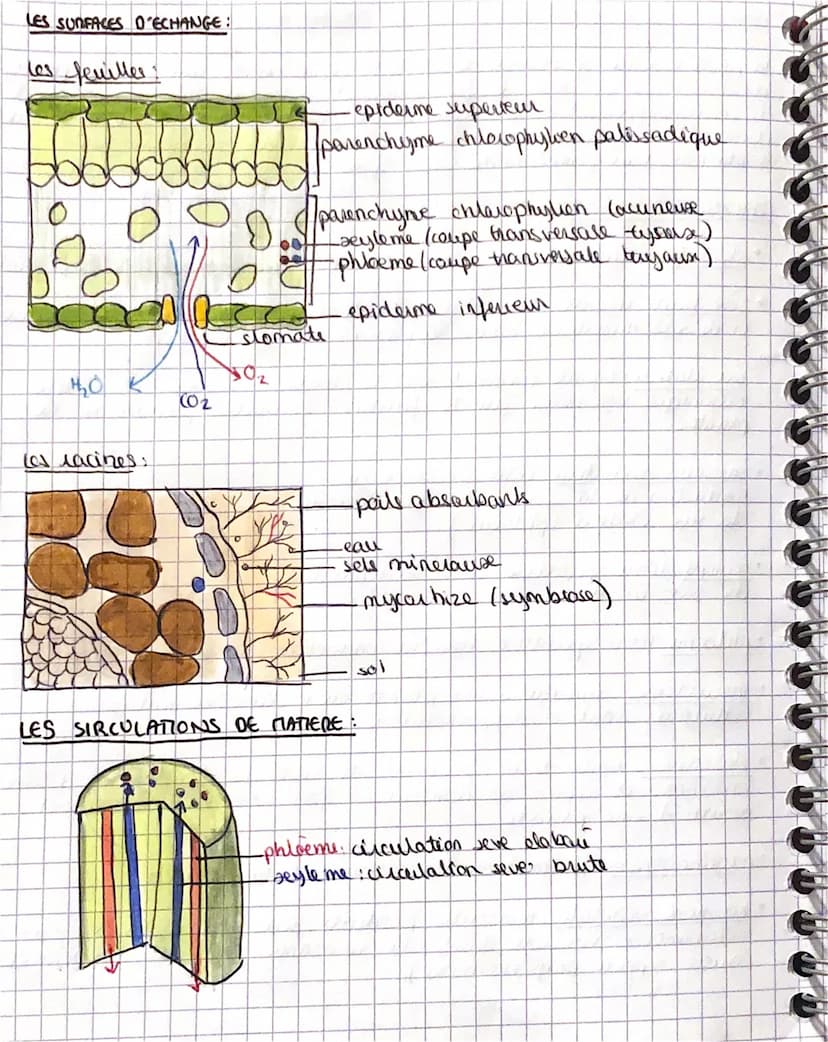 LES SURFACES D'ECHANGE:
Les feuilles:
epiderme superieur
parenchyme chlorophylien palissadique
parenchyme chlorophylien lacuneuse
xyleme (coupe transversale tuyaux)
phloeme (coupe tranversale tuyaux)
epiderme inferieur
stomate
H2O
O2
CO2
Les racines:
poils absorbants
eau
sels mineraux
mycorhize (symbiose)
sol
LES SIRCULATIONS DE MATIERE:
phloème: circulation seve elaboré
xyleme: circulation seve brute